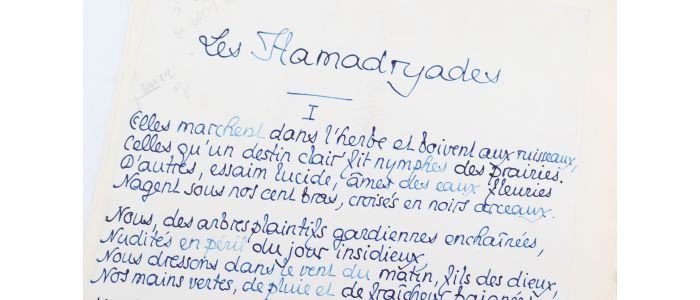 Les Hamadryades
I
Elles marchent dans l'herbe et boivent aux ruisseaux,
Celles qu'un destin clair fit nymphes des prairies.
D'autres, essaim lucide, âmes des eaux fleuries
Nagent sous nos cent bras, croisés en noirs arceaux.
Nous, des arbres plaintifs gardiennes enchaînées,
Nudités en péril du jour insidieux,
Nous dressons dans le vent du matin, fils des dieux,
Nos mains vertes, de pluie et de fraîcheur baignées